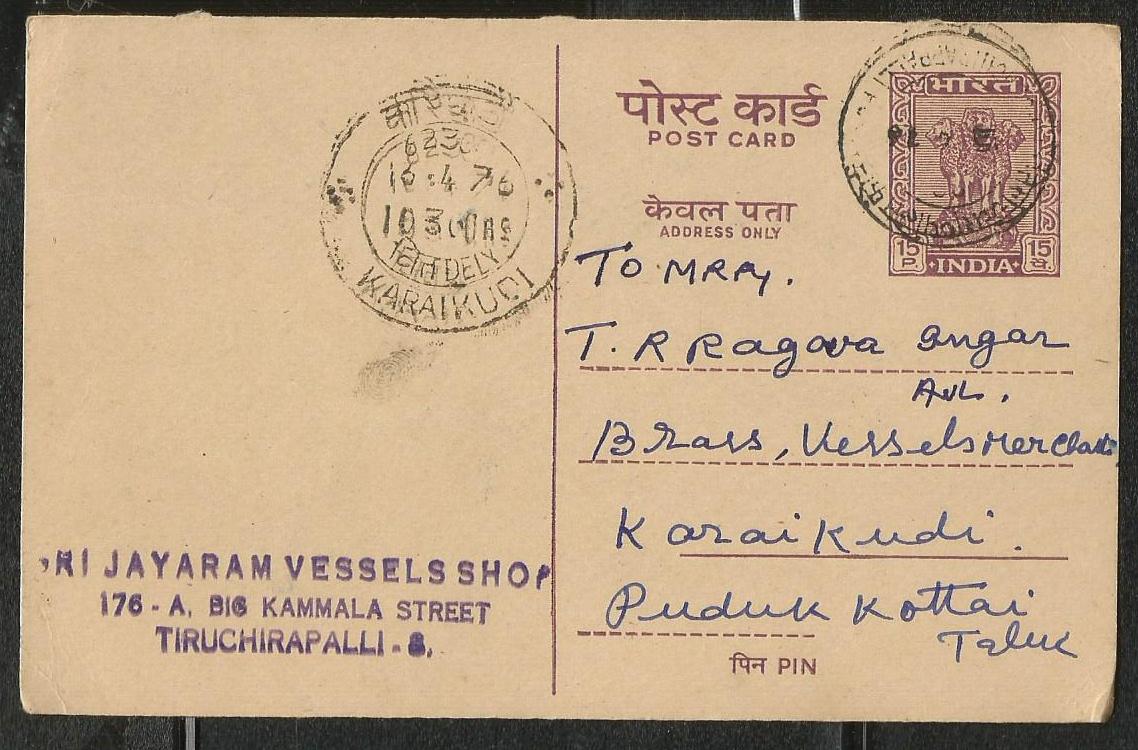 पोस्ट कार्ड
POST CARD
भारत
केवल पता
ADDRESS ONLY
15 P
INDIA
15 पै.
10 30 HRS
DELY
KARAIKUDI
TO MRRy.
T. R Ragava angar
Avl.
Brass, Vessels Merchants
Karaikudi.
Pudukkottai
Taluk
पिन PIN
SRI JAYARAM VESSELS SHOP
176 - A, BIG KAMMALA STREET
TIRUCHIRAPALLI - 8.